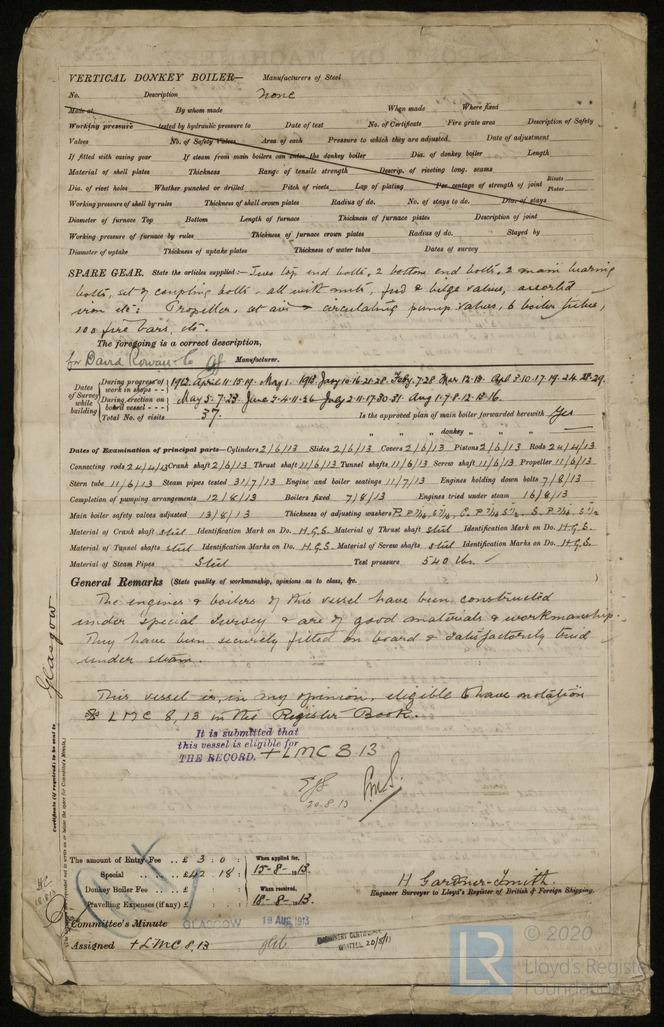 VERTICAL DONKEY BOILER— Manufacturers of Steel
No. Description None
Made at By whom made When made Where fixed
Working pressure tested by hydraulic pressure to Date of test No. of Certificate Fire grate area Description of Safety
Valves No. of Safety Valves Area of each Pressure to which they are adjusted Date of adjustment
If fitted with easing gear If steam from main boilers can enter the donkey boiler Dia. of donkey boiler Length
Material of shell plates Thickness Range of tensile strength Descrip. of riveting long. seams
Dia. of rivet holes Whether punched or drilled Pitch of rivets Lap of plating Per centage of strength of joint Rivets Plates
Working pressure of shell by rules Thickness of shell crown plates Radius of do. No. of stays to do. Dia. of stays
Diameter of furnace Top Bottom Length of furnace Thickness of furnace plates Description of joint
Working pressure of furnace by rules Thickness of furnace crown plates Radius of do. Stayed by
Diameter of uptake Thickness of uptake plates Thickness of water tubes Dates of survey
SPARE GEAR. State the articles supplied:— Two top end bolts, 2 bottom end bolts, 2 main bearing
bolts, set of coupling bolts - all with nuts, feed & bilge valves, assorted
iron etc: Propeller, set air & circulating pump valves, 6 boiler tubes,
100 fire bars, etc.
The foregoing is a correct description,
for David Rowan & Co Manufacturer.
Dates of Survey while building
During progress of work in shops - - 1912. April 11. 15. 19. May 1. 1913. Jan 10. 16. 21. 28. Feb 7. 28 Mar 12. 13. Apl 3. 10. 17. 19. 24. 28. 29.
During erection on board vessel - - - May 5. 7. 23. June 2. 4. 11. 26 July 2. 11. 17. 30. 31. Aug 1. 7. 8. 12. 13. 16.
Total No. of visits 37. Is the approved plan of main boiler forwarded herewith Yes
" " " donkey " " " —
Dates of Examination of principal parts—Cylinders 2/6/13 Slides 2/6/13 Covers 2/6/13 Pistons 2/6/13 Rods 24/4/13
Connecting rods 24/4/13 Crank shaft 2/6/13 Thrust shaft 11/6/13 Tunnel shafts 11/6/13 Screw shaft 11/6/13 Propeller 11/6/13
Stern tube 11/6/13 Steam pipes tested 31/7/13 Engine and boiler seatings 11/7/13 Engines holding down bolts 7/8/13
Completion of pumping arrangements 12/8/13 Boilers fixed 7/8/13 Engines tried under steam 16/8/13
Main boiler safety valves adjusted 13/8/13 Thickness of adjusting washers
Material of Crank shaft steel Identification Mark on Do. H.G.S. Material of Thrust shaft steel Identification Mark on Do. H.G.S.
Material of Tunnel shafts steel Identification Marks on Do. H.G.S. Material of Screw shafts steel Identification Marks on Do. H.G.S.
Material of Steam Pipes Steel Test pressure 540 lbs.
General Remarks (State quality of workmanship, opinions as to class, &c.
The engines & boilers of this vessel have been constructed
under special survey & are of good materials & workmanship.
They have been securely fitted on board & satisfactorily tried
under steam.
This vessel is, in my opinion, eligible to have notation
LMC 8,13 in the Register Book.
It is submitted that
this vessel is eligible for
THE RECORD. + LMC 8 13
20.8.13
Glasgow
Certificate (if required) to be sent to
The amount of Entry Fee .. £ 3 : 0 : When applied for,
Special .. .. £ 42 : 18 : 15-8-1913.
Donkey Boiler Fee .. .. £ : : When received,
Travelling Expenses (if any) £ : : 18-8-1913.
H Gardner-Smith.
Engineer Surveyor to Lloyd's Register of British & Foreign Shipping.
Committee's Minute GLASGOW 19 AUG 1913
Assigned + LMC 8,13
WRITTEN 20/8/13
LR © 2020
Lloyd's Register
Foundation